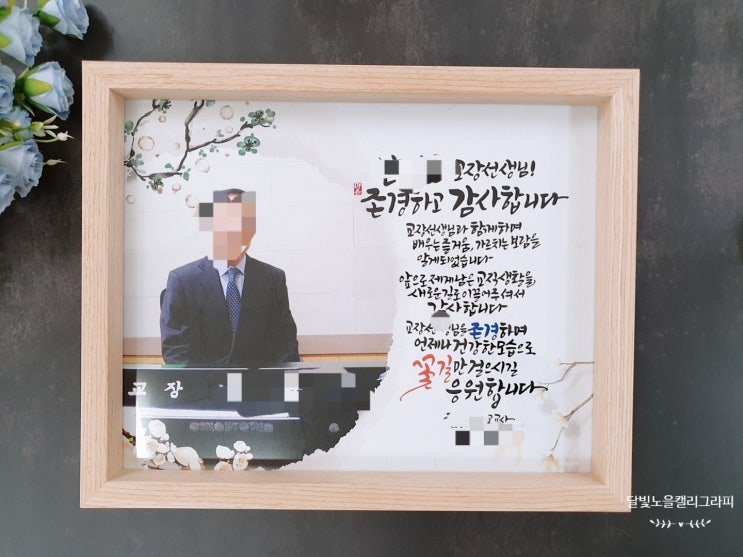 교장선생님!
존경하고 감사합니다
교장선생님과 함께하며
배우는 즐거움, 가르치는 보람을
알게되었습니다
앞으로 제게 남은 교직생활을,
새로운 길로 이끌어주셔서
감사합니다
교장선생님을 존경하며
언제나 건강한 모습으로
꽃길만 걸으시길
응원합니다
교사
교장
달빛노을캘리그라피